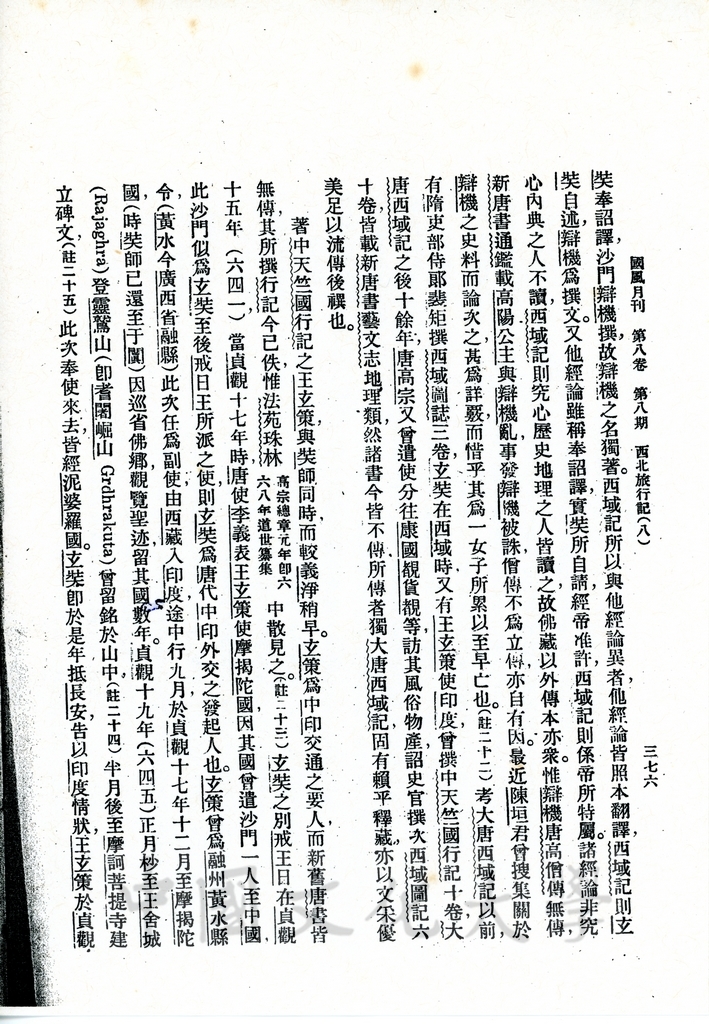 國風月刊　第八卷　第八期　西北旅行記(八)
三七六
奘奉詔譯,沙門辯機撰,故辯機之名獨著。西域記所以與他經論異者,他經論皆照本翻譯,西域記則玄
奘自述,辯機爲撰文。又他經論雖稱奉詔譯,實奘所自請,經帝准許,西域記則係帝所特屬。諸經論非究
心內典之人不讀,西域記則究心歷史地理之人皆讀之,故佛藏以外傳本亦衆。惟辯機,唐高僧傳無傳,
新唐書通鑑載高陽公主與辯機亂事發,辯機被誅,僧傳不爲立傳,亦自有因。最近陳垣君曾搜集關於
辯機之史料而論次之,甚爲詳覈,而惜乎其爲一女子所累以至早亡也。(註二十二)考大唐西域記以前,
有隋吏部侍郎裴矩撰西域圖誌三卷,玄奘在西域時,又有王玄策使印度,曾撰中天竺國行記十卷,大
唐西域記之後十餘年,唐高宗又曾遣使分往康國覩貨覩等,訪其風俗物產,詔史官撰次西域圖記六
十卷,皆載新唐書藝文志地理類,然諸書今皆不傳,所傳者獨大唐西域記,固有賴乎釋藏,亦以文采優
美,足以流傳後禩也。
著中天竺國行記之王玄策,與奘師同時,而較義淨稍早。玄策爲中印交通之要人,而新舊唐書皆
無傳,其所撰行記今已佚,惟法苑珠林高宗總章元年卽六六八年道世纂集中散見之。(註二十三)玄奘之別戒王日在貞觀
十五年(六四一)當貞觀十七年時,唐使李義表王玄策使摩揭陀國,因其國曾遣沙門一人至中國,
此沙門似爲玄奘至後戒日王所派之使,則玄奘爲唐代中印外交之發起人也。玄策曾爲融州黃水縣
令,(黃水今廣西省融縣)此次任爲副使,由西藏入印度,途中行九月,於貞觀十七年十二月至摩揭陀
國,(時奘師已還至于闐)因巡省佛鄉,觀覽聖迹,留其國數年。貞觀十九年(六四五)正月杪至王舍城
(Rajaghra)登靈鷲山(卽耆闍崛山 Grdhrakuta)曾留銘於山中,(註二十四)半月後至摩訶菩提寺建
立碑文,(註二十五)此次奉使來去皆經泥婆羅國。玄奘卽於是年抵長安,告以印度情狀,王玄策於貞觀
中國文化大學